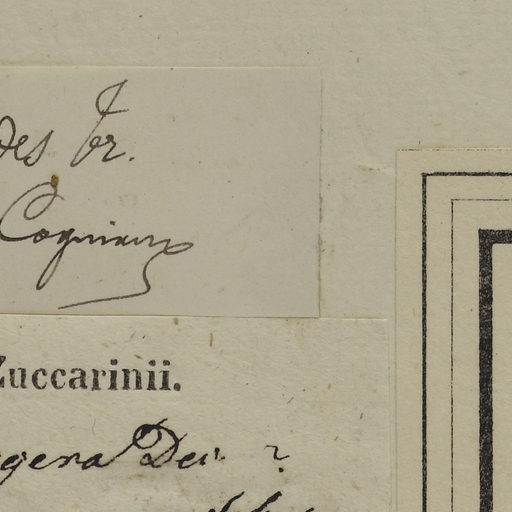 des Tr.
Cogniaux
Zuccarinii.
gena Dec ?